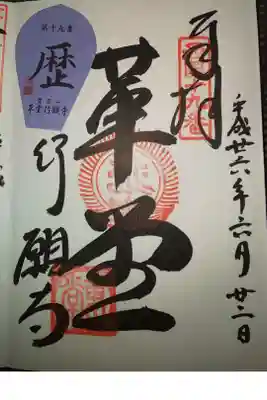 平成廿六年六月廿二日
奉拝
革堂
行願寺
第十九番
歴
革堂行願寺